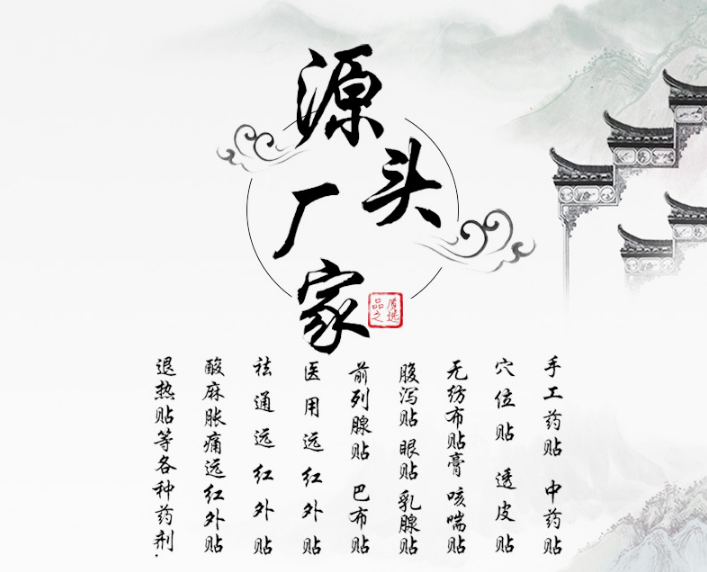 源头厂家
品质之选
手工药贴 中药贴
穴位贴 透皮贴
无纺布贴膏 咳喘贴
腹泻贴 眼贴 乳腺贴
前列腺贴 巴布贴
医用远红外贴
祛通远红外贴
酸麻胀痛远红外贴
退热贴等各种药剂.